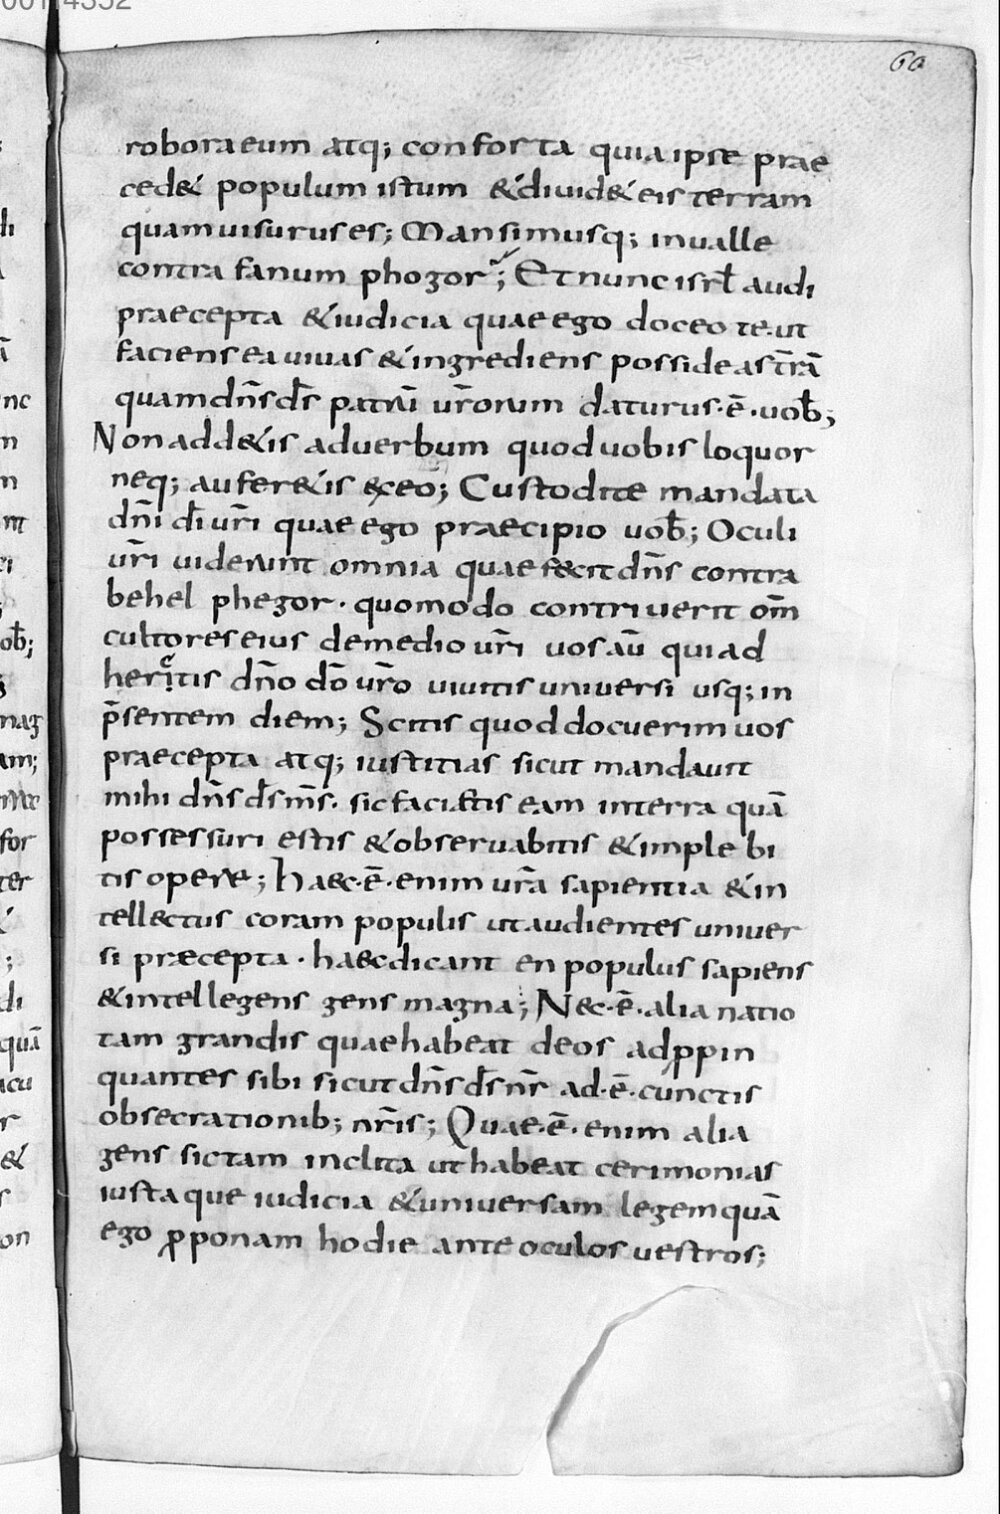 60
robora eum atq; conforta quia ipse prae
ced& populum istum & diuid& eis terram
quam uisurus es; Mansimusq; in ualle
contra fanum phogor; Et nunc isrl̄ audi
praecepta & iudicia quae ego doceo te. ut
faciens ea uiuas & ingrediens possideas tr̄ā
quam dn̄s ds̄ patrū ur̄orum daturus·ē·uob̄;
Non add&is ad uerbum quod uobis loquor
neq; aufer&is ex eo; Custodite mandata
dn̄i dī ur̄i quae ego praecipio uob̄; Oculi
ur̄i uiderunt omnia quae fecit dn̄s contra
behel phegor· quomodo contriuerit om̄
cultores eius de medio ur̄i uos aū qui ad
heritis dn̄o dō ur̄o uiuitis uniuersi usq; in
p̄sentem diem; Scitis quod docuerim uos
praecepta atq; iustitias sicut mandauit
mihi dn̄s ds̄ ms̄· sic facietis eam in terra quā
possessuri estis & obseruabitis & imple bi
tis opere; Haec·ē·enim ur̄a sapientia & in
tell&ctus coram populis ut audientes uniuer
si præcepta· haec dicant en populus sapiens
& intellegens gens magna; Nec·ē·alia natio
tam grandis quae habeat deos adꝓpin
quantes sibi sicut dn̄s ds̄ nr̄ ad·ē·cunctis
obsecrationib; nr̄is; Quae·ē·enim alia
gens sic tam inclita ut habeat cerimonias
iusta que iudicia & uniuersam legem quā
ego ꝓponam hodie ante oculos uestros;